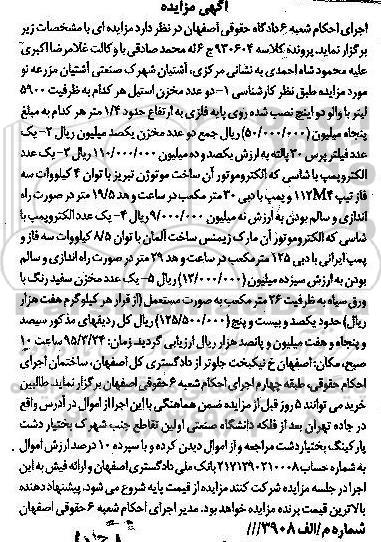 آگهی مزایده
اجرای احکام شعبه ۶ دادگاه حقوقی اصفهان در نظر دارد مزایده ای با مشخصات زیر
برگزار نماید. پرونده کلاسه ۹۳۰۶۰۴ ج ۶ له محمد صادقی با وکالت غلامرضا اکبری
علیه محمود شاه احمدی به نشانی مرکزی، آشتیان شهرک صنعتی آشتیان مزرعه نو
مورد مزایده طبق نظر کارشناسی ۱- دو عدد مخزن استیل هر کدام به ظرفیت ۵۹۰۰
لیتر با والو دو اینچ نصب شده روی پایه فلزی به ارتفاع حدود ۱/۴ متر هر کدام به مبلغ
پنجاه میلیون (۵۰/۰۰۰/۰۰۰) ریال جمع دو عدد مخزن یکصد میلیون ریال ۲- یک
عدد فیلتر پرس ۳۰ پالته به ارزش یکصد و ده میلیون ۱۱۰/۰۰۰/۰۰۰ ریال ۳- یک عدد
الکتروپمپ با شاسی که الکتروموتور آن ساخت موتوژن تبریز با توان ۴ کیلووات سه
فاز تیپ ۱۱۲M۴ و پمپ با دبی ۳۰ متر مکعب در ساعت و هد ۱۹/۵ متر در صورت راه
اندازی و سالم بودن به ارزش نه میلیون ۹/۰۰۰/۰۰۰ ریال ۴- یک عدد الکتروپمپ با
شاسی که الکتروموتور آن مارک زیمنس ساخت آلمان با توان ۸/۵ کیلووات سه فاز و
پمپ ایرانی با دبی ۱۲۵ متر مکعب در ساعت و هد ۲۹ متر در صورت راه اندازی و سالم
بودن به ارزش سیزده میلیون (۱۳/۰۰۰/۰۰۰) ریال ۵- یک عدد مخزن سفید رنگ با
ورق سیاه به ظرفیت ۲۶ متر مکعب به صورت مستعمل (از قرار هر کیلوگرم هفت هزار
ریال) حدود یکصد و بیست و پنج (۱۲۵/۵۰۰/۰۰۰) ریال کل ردیفهای مذکور سیصد
و پنجاه و هفت میلیون و پانصد هزار ریال ارزیابی گردید. زمان: ۹۵/۳/۲۴ ساعت ۱۰
صبح، مکان: اصفهان خ نیکبخت جلوتر از دادگستری کل اصفهان، ساختمان اجرای
احکام حقوقی، طبقه چهارم اجرای احکام شعبه ۶ حقوقی اصفهان برگزار نماید. طالبین
خرید می توانند ۵ روز قبل از مزایده ضمن هماهنگی با این اجرا از اموال در آدرس واقع
در جاده تهران بعد از فلکه دانشگاه صنعتی اولین تقاطع جنب شهرک بختیار دشت
پارکینگ بختیاردشت مراجعه و از اموال دیدن کرده و با سپرده ۱۰ درصد ارزش اموال
به شماره حساب ۲۱۷۱۲۹۰۲۱۰۰۰۸ بانک ملی دادگستری اصفهان و ارائه فیش به این
اجرا در جلسه مزایده شرکت کنند مزایده از قیمت پایه شروع می شود. پیشنهاد دهنده
بالاترین قیمت برنده مزایده خواهد بود. مدیر اجرای احکام شعبه ۶ حقوقی اصفهان
شماره م/الف ۳۹۰۸ ///